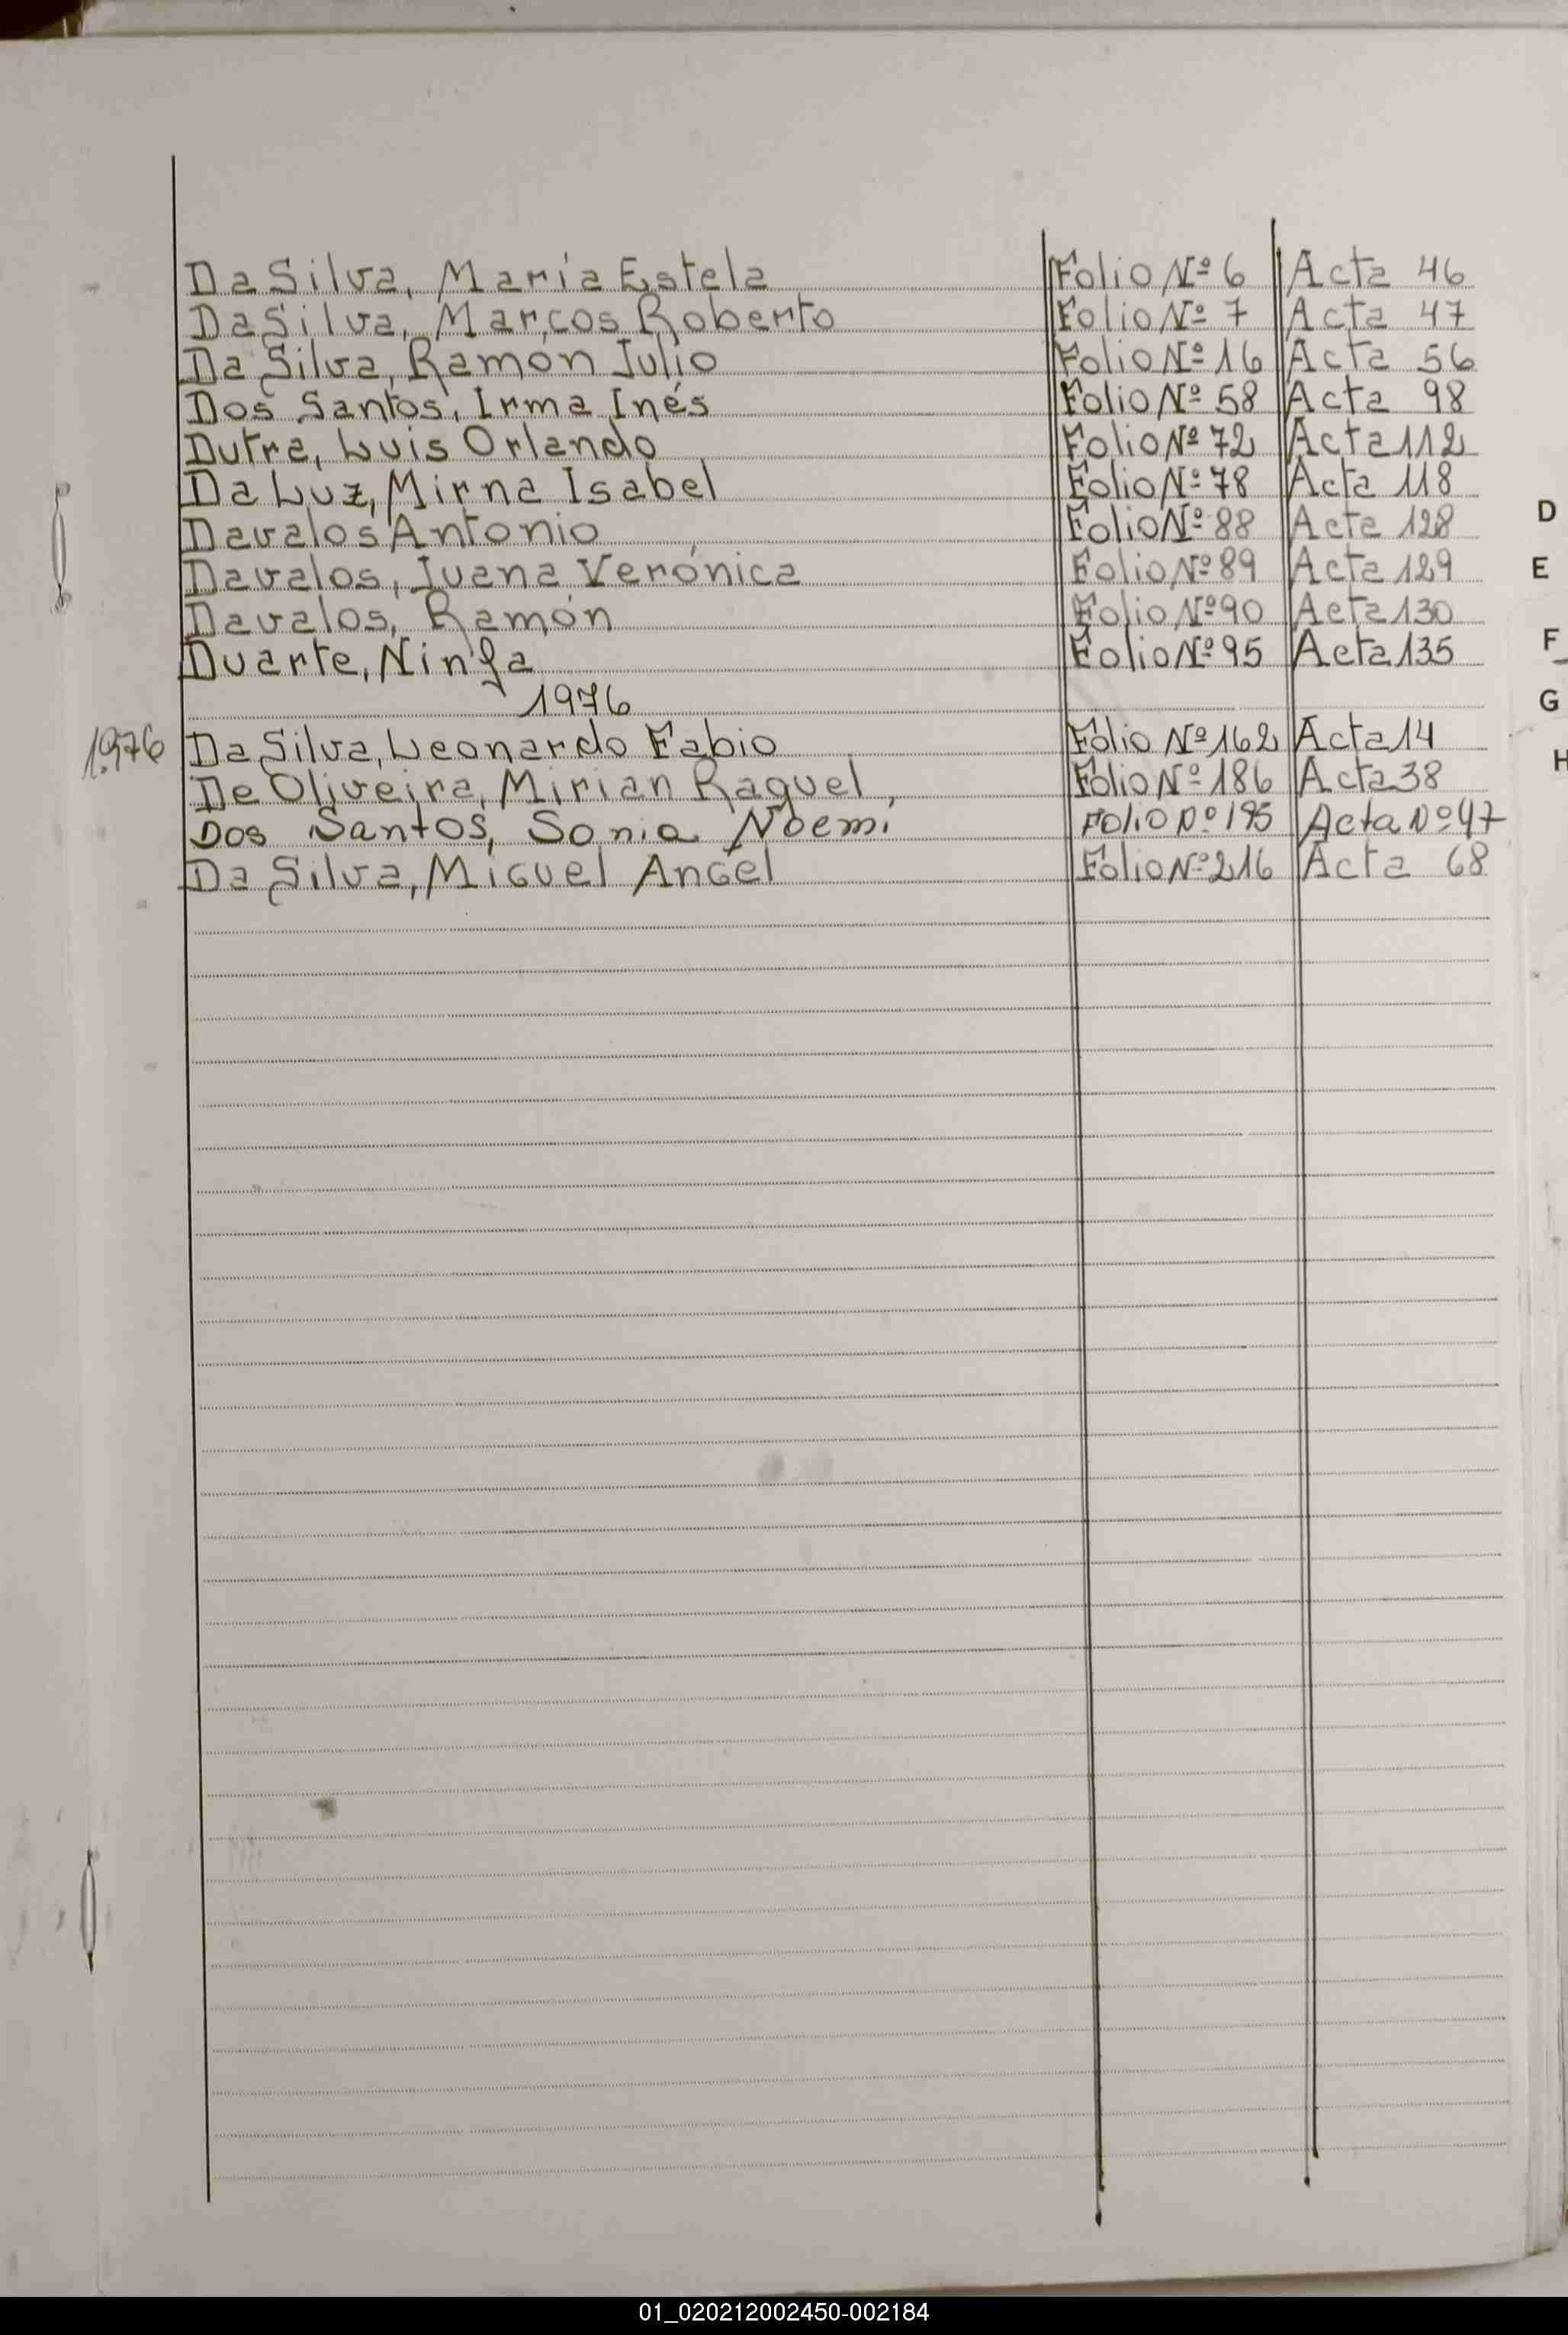 Da Silva, María Estela Folio Nº 6 Acta 46
Da Silva, Marcos Roberto Folio Nº 7 Acta 47
Da Silva, Ramón Julio Folio Nº 16 Acta 56
Dos Santos, Irma Inés Folio Nº 58 Acta 98
Dutra, Luis Orlando Folio Nº 72 Acta 112
Da Luz, Mirna Isabel Folio Nº 78 Acta 118
Davalos Antonio Folio Nº 88 Acta 128
Davalos, Juana Verónica Folio Nº 89 Acta 129
Davalos, Ramón Folio Nº 90 Acta 130
Duarte, Ninfa Folio Nº 95 Acta 135
1976
1976 Da Silva, Leonardo Fabio Folio Nº 162 Acta 14
De Oliveira, Mirian Raquel, Folio Nº 186 Acta 38
Dos Santos, Sonia Noemi Folio Nº 195 Acta Nº 47
Da Silva, Miguel Angel Folio Nº 216 Acta 68
D
E
F
G
H
01_020212002450-002184